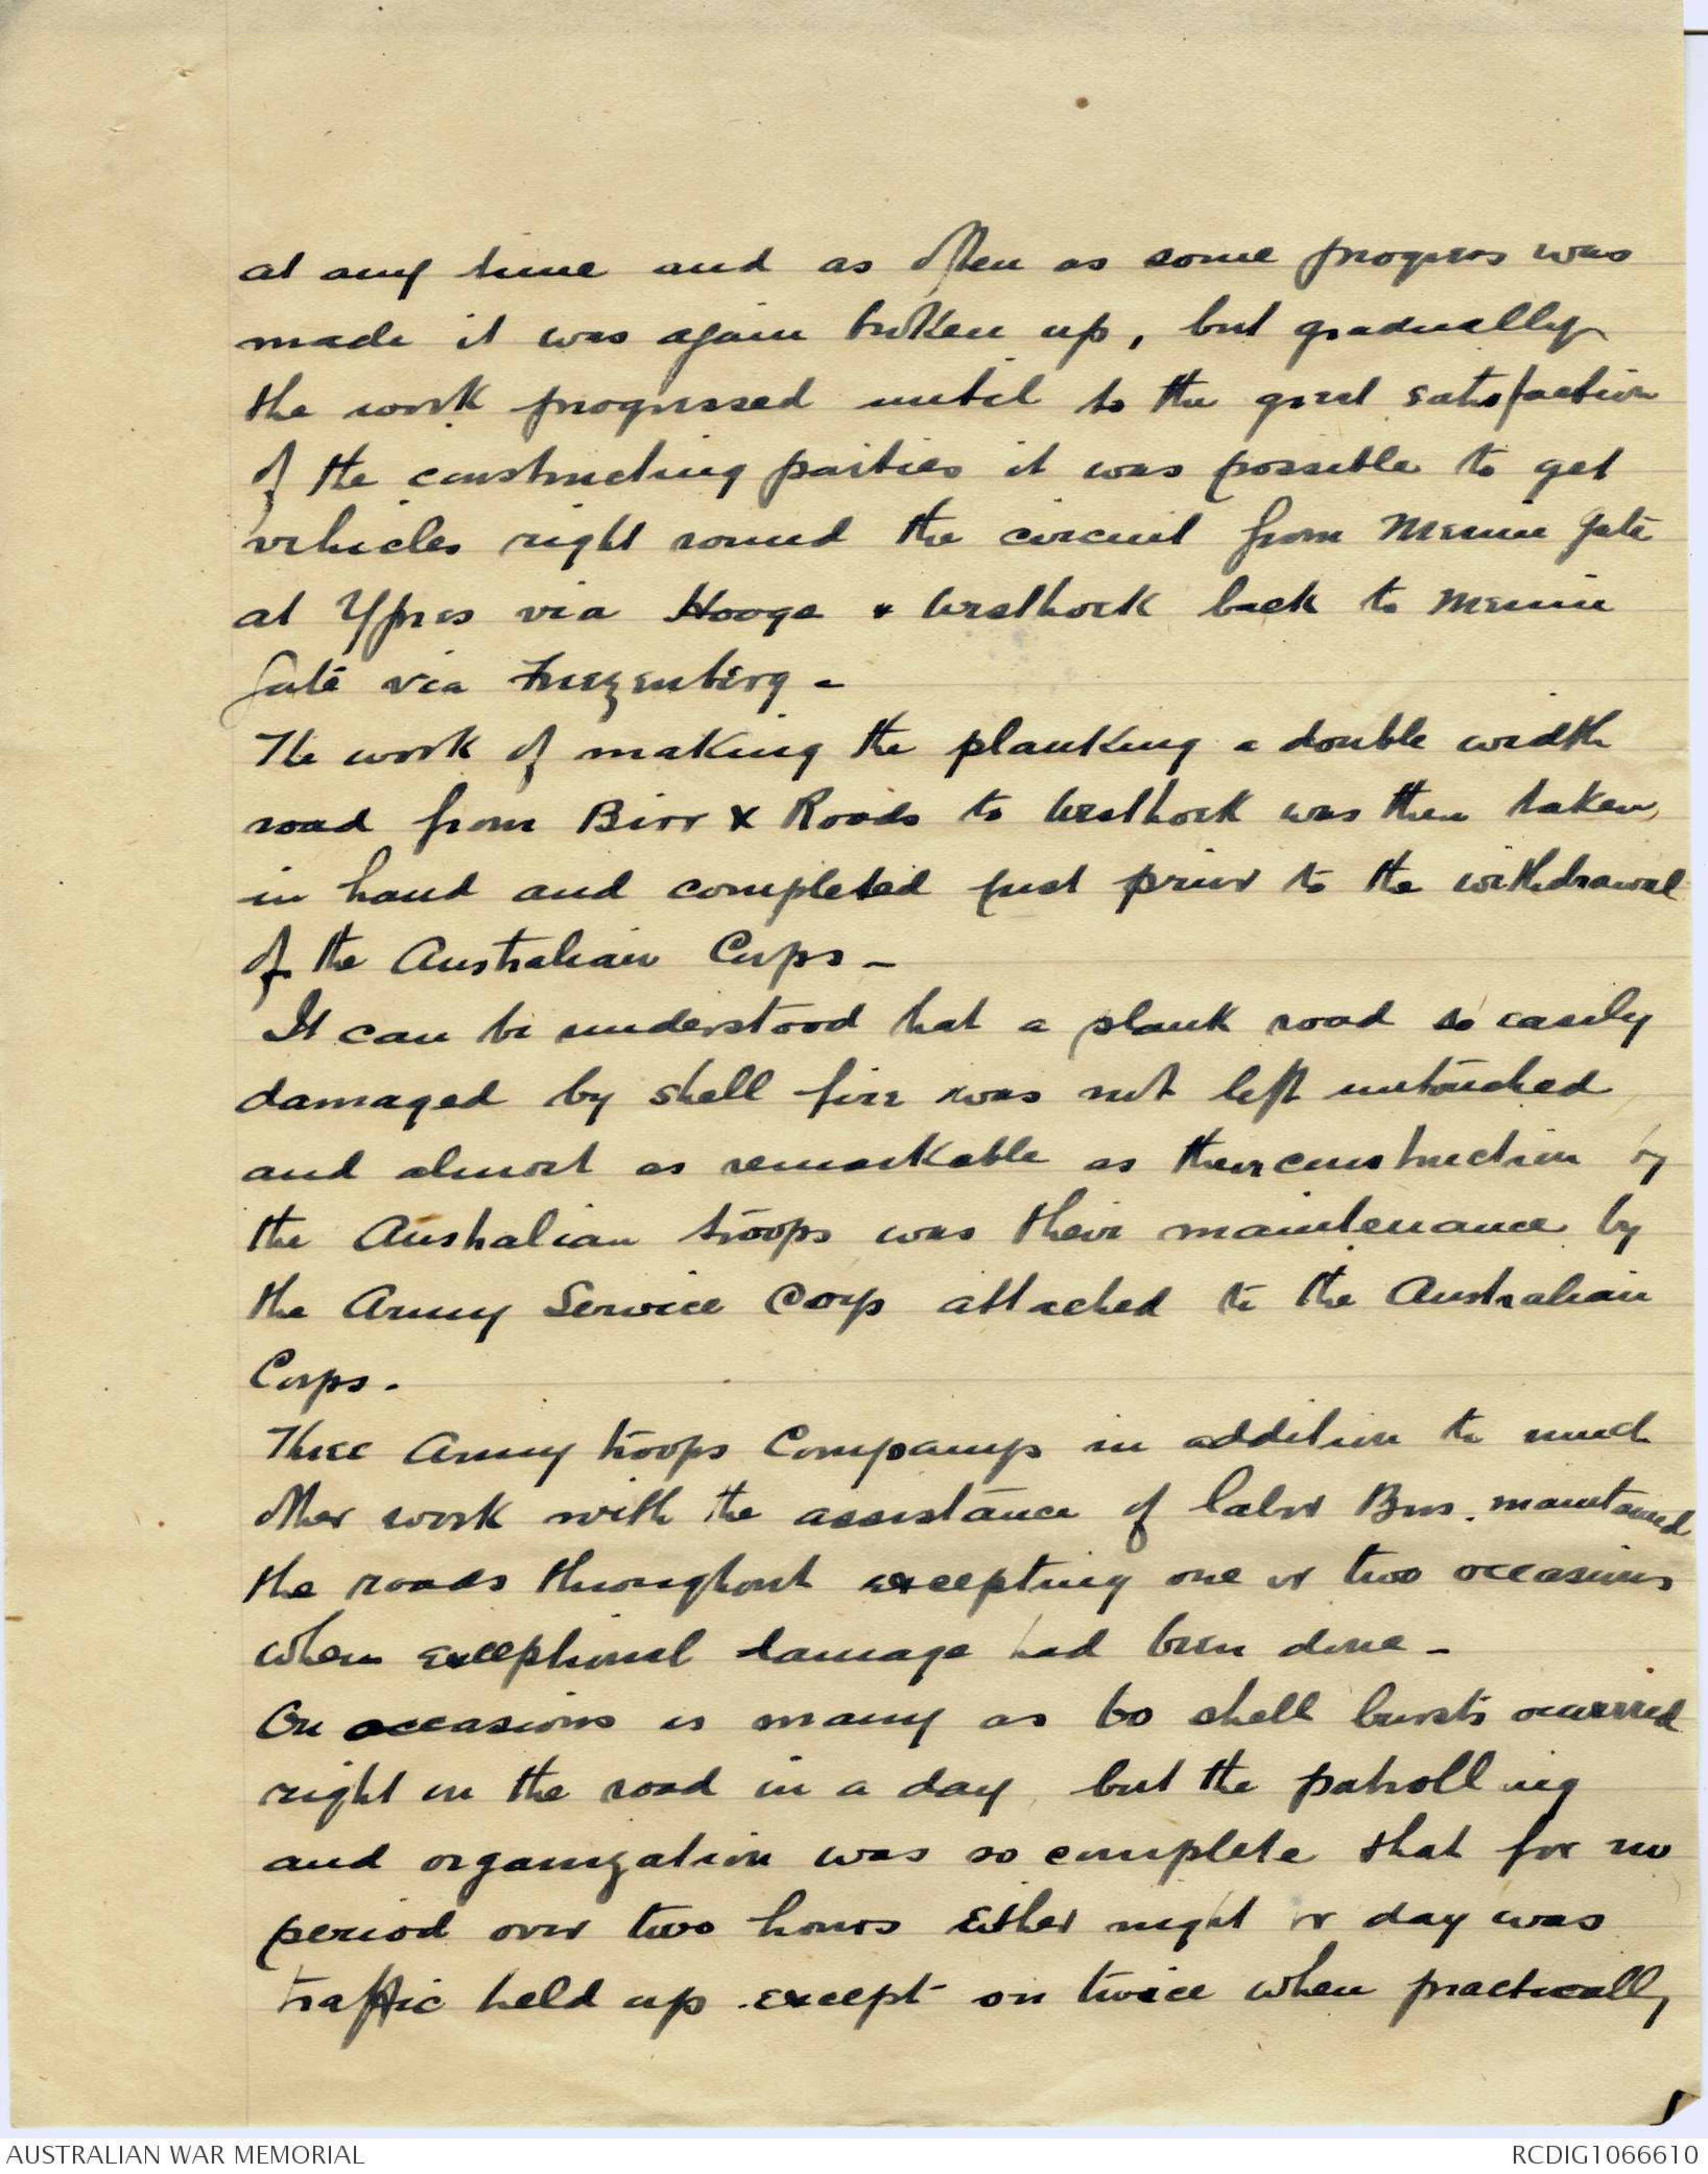 at any time and as often as some progress was
made it was again broken up, but gradually
the work progressed until to the great satisfaction
of the constructing parties it was possible to get
vehicles right round the circuit from Menin Gate
at Ypres via Hooge & Westhoek back to Menin
Gate via Frezenberg -
The work of making the planking a double width
road from Birr X Roads to Westhoek was then taken
in hand and completed just prior to the withdrawal
of the Australian Corps -
It can be understood that a plank road so easily
damaged by shell fire was not left untouched
and almost as remarkable as their construction by
the Australian troops was their maintenance by
the Army Service Corp attached to the Australian
Corps.
Three Army troops Companys in addition to much
other work with the assistance of labor Bns. maintained
the roads throughout excepting one or two occasions
when exceptional damage had been done -
On occasions as many as 60 shell bursts occurred
right on the road in a day, but the patrolling
and organization was so complete that for no
period over two hours either night or day was
traffic held up except on twice when practically
AUSTRALIAN WAR MEMORIAL
RCDIG1066610